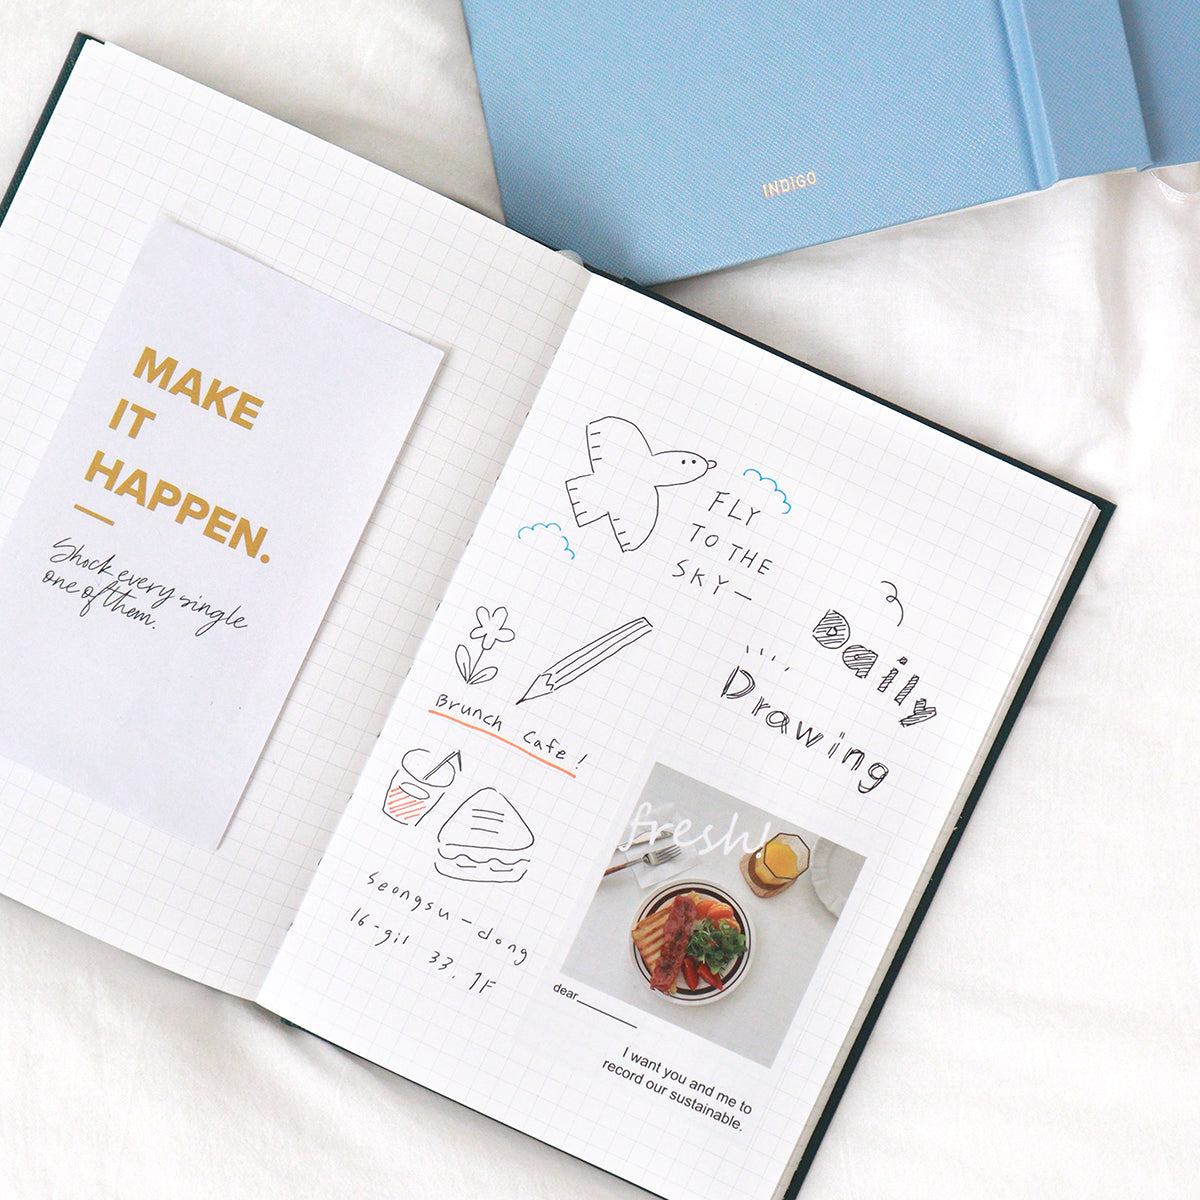 INDIGO
MAKE
IT
HAPPEN.
Shock every single
one of them.
FLY
TO THE
SKY—
Daily
Drawing
Brunch Cafe!
Seongsu-dong
16-gil 33. 1F
fresh!
dear
I want you and me to
record our sustainable.